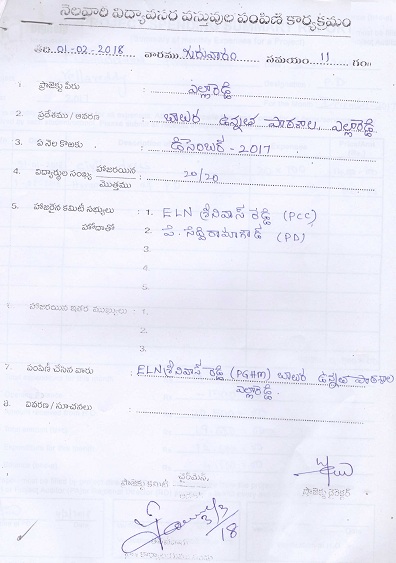 నెలవారి విద్యావసర వస్తువుల పంపిణి కార్యక్రమం
తేది. 01-02-2018 వారము గురువారం సమయం 11 గం॥
1. ప్రాజెక్టు పేరు : ఎల్లారెడ్డి
2. ప్రదేశము / ఆవరణ : బాలుర ఉన్నత పాఠశాల, ఎల్లారెడ్డి
3. ఏ నెల కొఱకు : డిసెంబర్ - 2017
4. విద్యార్థుల సంఖ్య హాజరయిన / మొత్తము : 20/20
5. హాజరైన కమిటి సభ్యులు : 1. ELN శ్రీనివాస్ రెడ్డి (PCC)
హోదాతో 2. పి. సిద్దిరామాగౌడ్ (PD)
3.
4.
5.
6. హాజరయిన ఇతర ముఖ్యులు : 1.
2.
3.
7. పంపిణీ చేసిన వారు : ELN శ్రీనివాస్ రెడ్డి (PGHM) బాలుర ఉన్నత పాఠశాల
ఎల్లారెడ్డి.
8. వివరణ / సూచనలు :
చైర్మెన్,
ప్రాజెక్టు కమిటి
ప్రాజెక్టు డైరెక్టర్
3/3/18